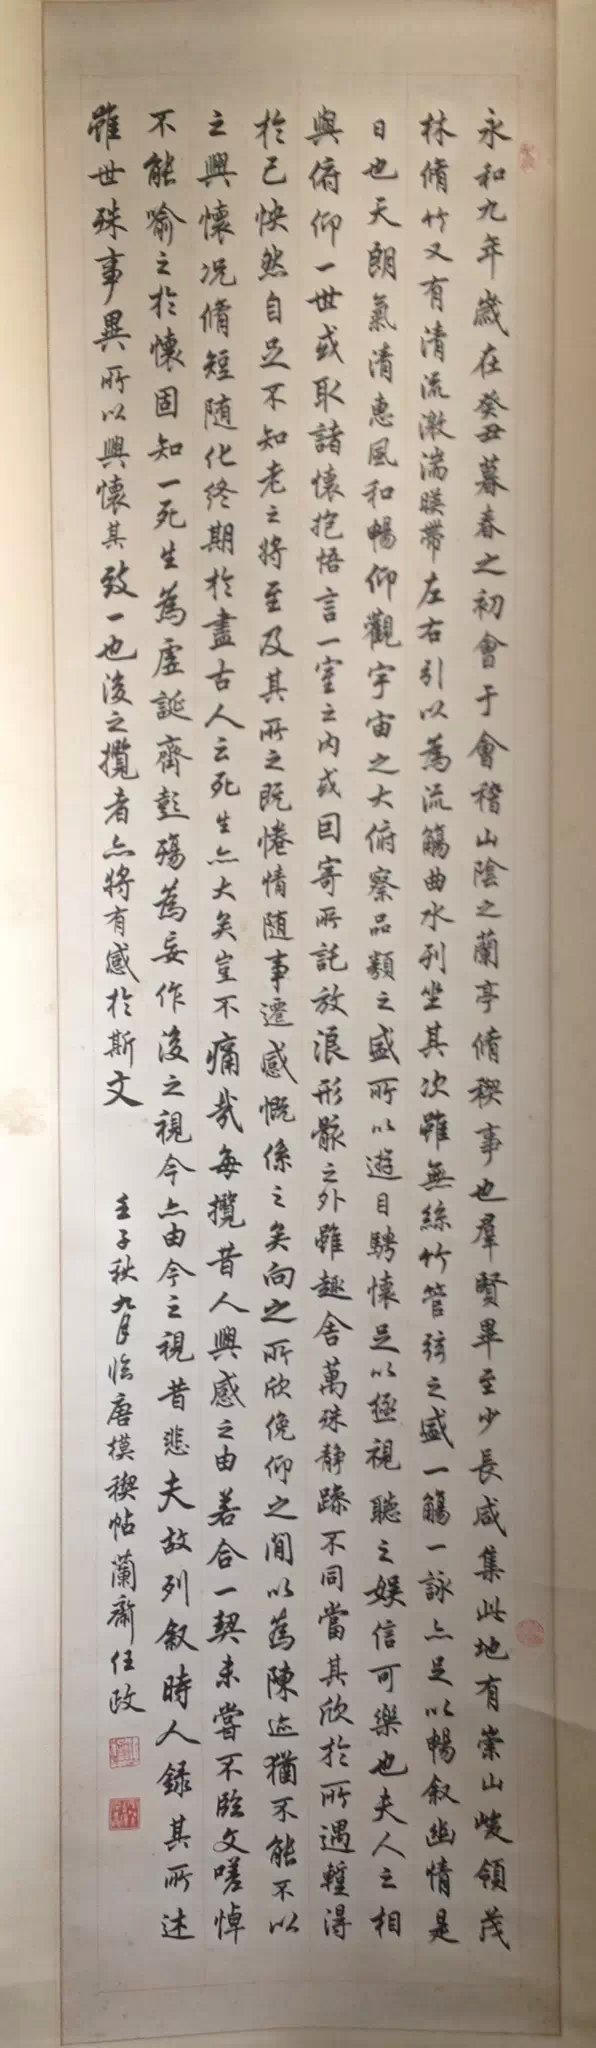 永和九年歲在癸丑暮春之初會于會稽山陰之蘭亭脩稧事也羣賢畢至少長咸集此地有崇山峻領茂
林脩竹又有清流激湍暎帶左右引以為流觴曲水列坐其次雖無絲竹管弦之盛一觴一詠亦足以暢叙幽情是
日也天朗氣清惠風和暢仰觀宇宙之大俯察品類之盛所以遊目騁懷足以極視聽之娛信可樂也夫人之相
與俯仰一世或取諸懷抱悟言一室之內或因寄所託放浪形骸之外雖趣舍萬殊靜躁不同當其欣於所遇蹔得
於己怏然自足不知老之將至及其所之既惓情隨事遷感慨係之矣向之所欣俛仰之閒以為陳迹猶不能不以
之興懷況脩短隨化終期於盡古人云死生亦大矣豈不痛哉每攬昔人興感之由若合一契未嘗不臨文嗟悼
不能喻之於懷固知一死生為虛誕齊彭殤為妄作後之視今亦由今之視昔悲夫故列叙時人錄其所述
雖世殊事異所以興懷其致一也後之攬者亦將有感於斯文
壬子秋九月臨唐模稧帖蘭齋任政